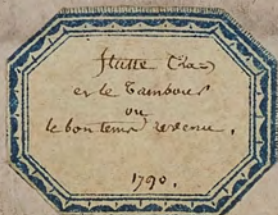 flutte
et le Tambour
ou
le bon tems revenu.
1790.